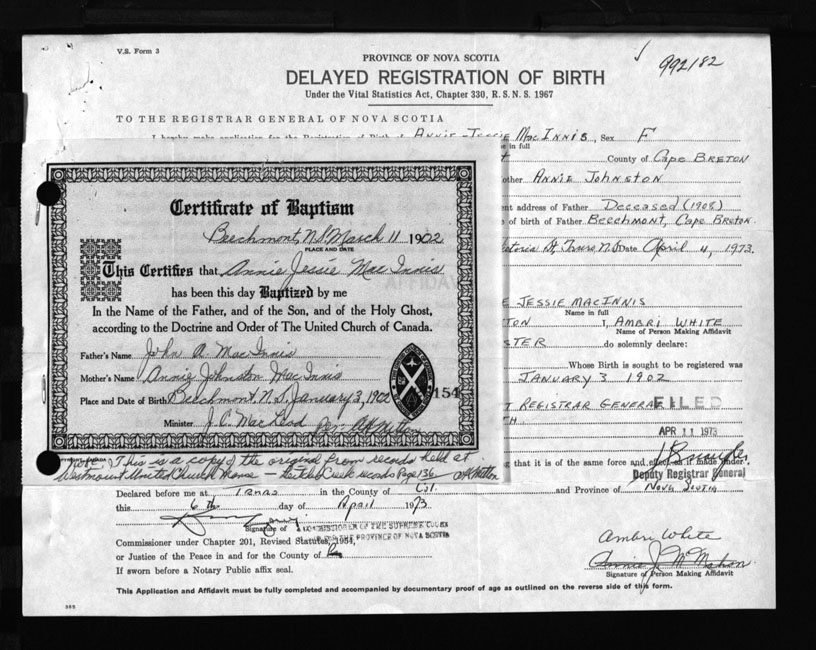 V.S. Form 3
992182
PROVINCE OF NOVA SCOTIA
DELAYED REGISTRATION OF BIRTH
Under the Vital Statistics Act, Chapter 330, R.S.N.S. 1967
TO THE REGISTRAR GENERAL OF NOVA SCOTIA
I hereby make application for the Registration of Birth of ANNIE JESSIE MACINNIS, Sex F
in full
County of CAPE BRETON
other ANNIE JOHNSTON
nt address of Father DECEASED (1908)
of birth of Father BEECHMONT, CAPE BRETON
St, Truro, N.S. Date April 4, 1973.
Certificate of Baptism
Beechmont, N.S. March 11 1902
PLACE AND DATE
This Certifies that Annie Jessie MacInnis
has been this day Baptized by me
In the Name of the Father, and of the Son, and of the Holy Ghost,
according to the Doctrine and Order of The United Church of Canada.
Father's Name John A. MacInnis
Mother's Name Annie Johnston MacInnis
Place and Date of Birth Beechmont, N.S. January 3, 1902
154
Minister J. C. MacLeod
Note: This is a copy of the original from records held at
Westmount United Church Manse – Leitches Creek records Page 136
E JESSIE MACINNIS
Name in full
TON I, AMBRI WHITE
Name of Person Making Affidavit
STER do solemnly declare:
Whose Birth is sought to be registered was
JANUARY 3 1902
T REGISTRAR GENERAL
FILED
APR 11 1973
ng that it is of the same force and effect as if made under
Deputy Registrar General
Declared before me at Truro in the County of Col. and Province of Nova Scotia
this 6th day of April 1973
Signature of A COMMISSIONER OF THE SUPREME COURT
FOR THE PROVINCE OF NOVA SCOTIA
Commissioner under Chapter 201, Revised Statutes, 1954,
or Justice of the Peace in and for the County of
If sworn before a Notary Public affix seal.
Ambri White
Annie J. McMahon
Signature of Person Making Affidavit
This Application and Affidavit must be fully completed and accompanied by documentary proof of age as outlined on the reverse side of this form.